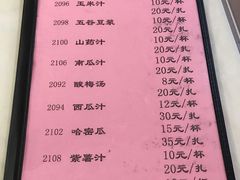 2096 玉米汁 10元/杯
20元/扎
2098 五谷豆浆 10元/杯
20元/扎
2100 山药汁 10元/杯
20元/扎
2106 南瓜汁 10元/杯
20元/扎
2092 酸梅汤 8元/杯
20元/扎
2094 西瓜汁 12元/杯
30元/扎
2102 哈密瓜 15元/杯
35元/扎
2108 紫薯汁 10元/杯
20元/扎